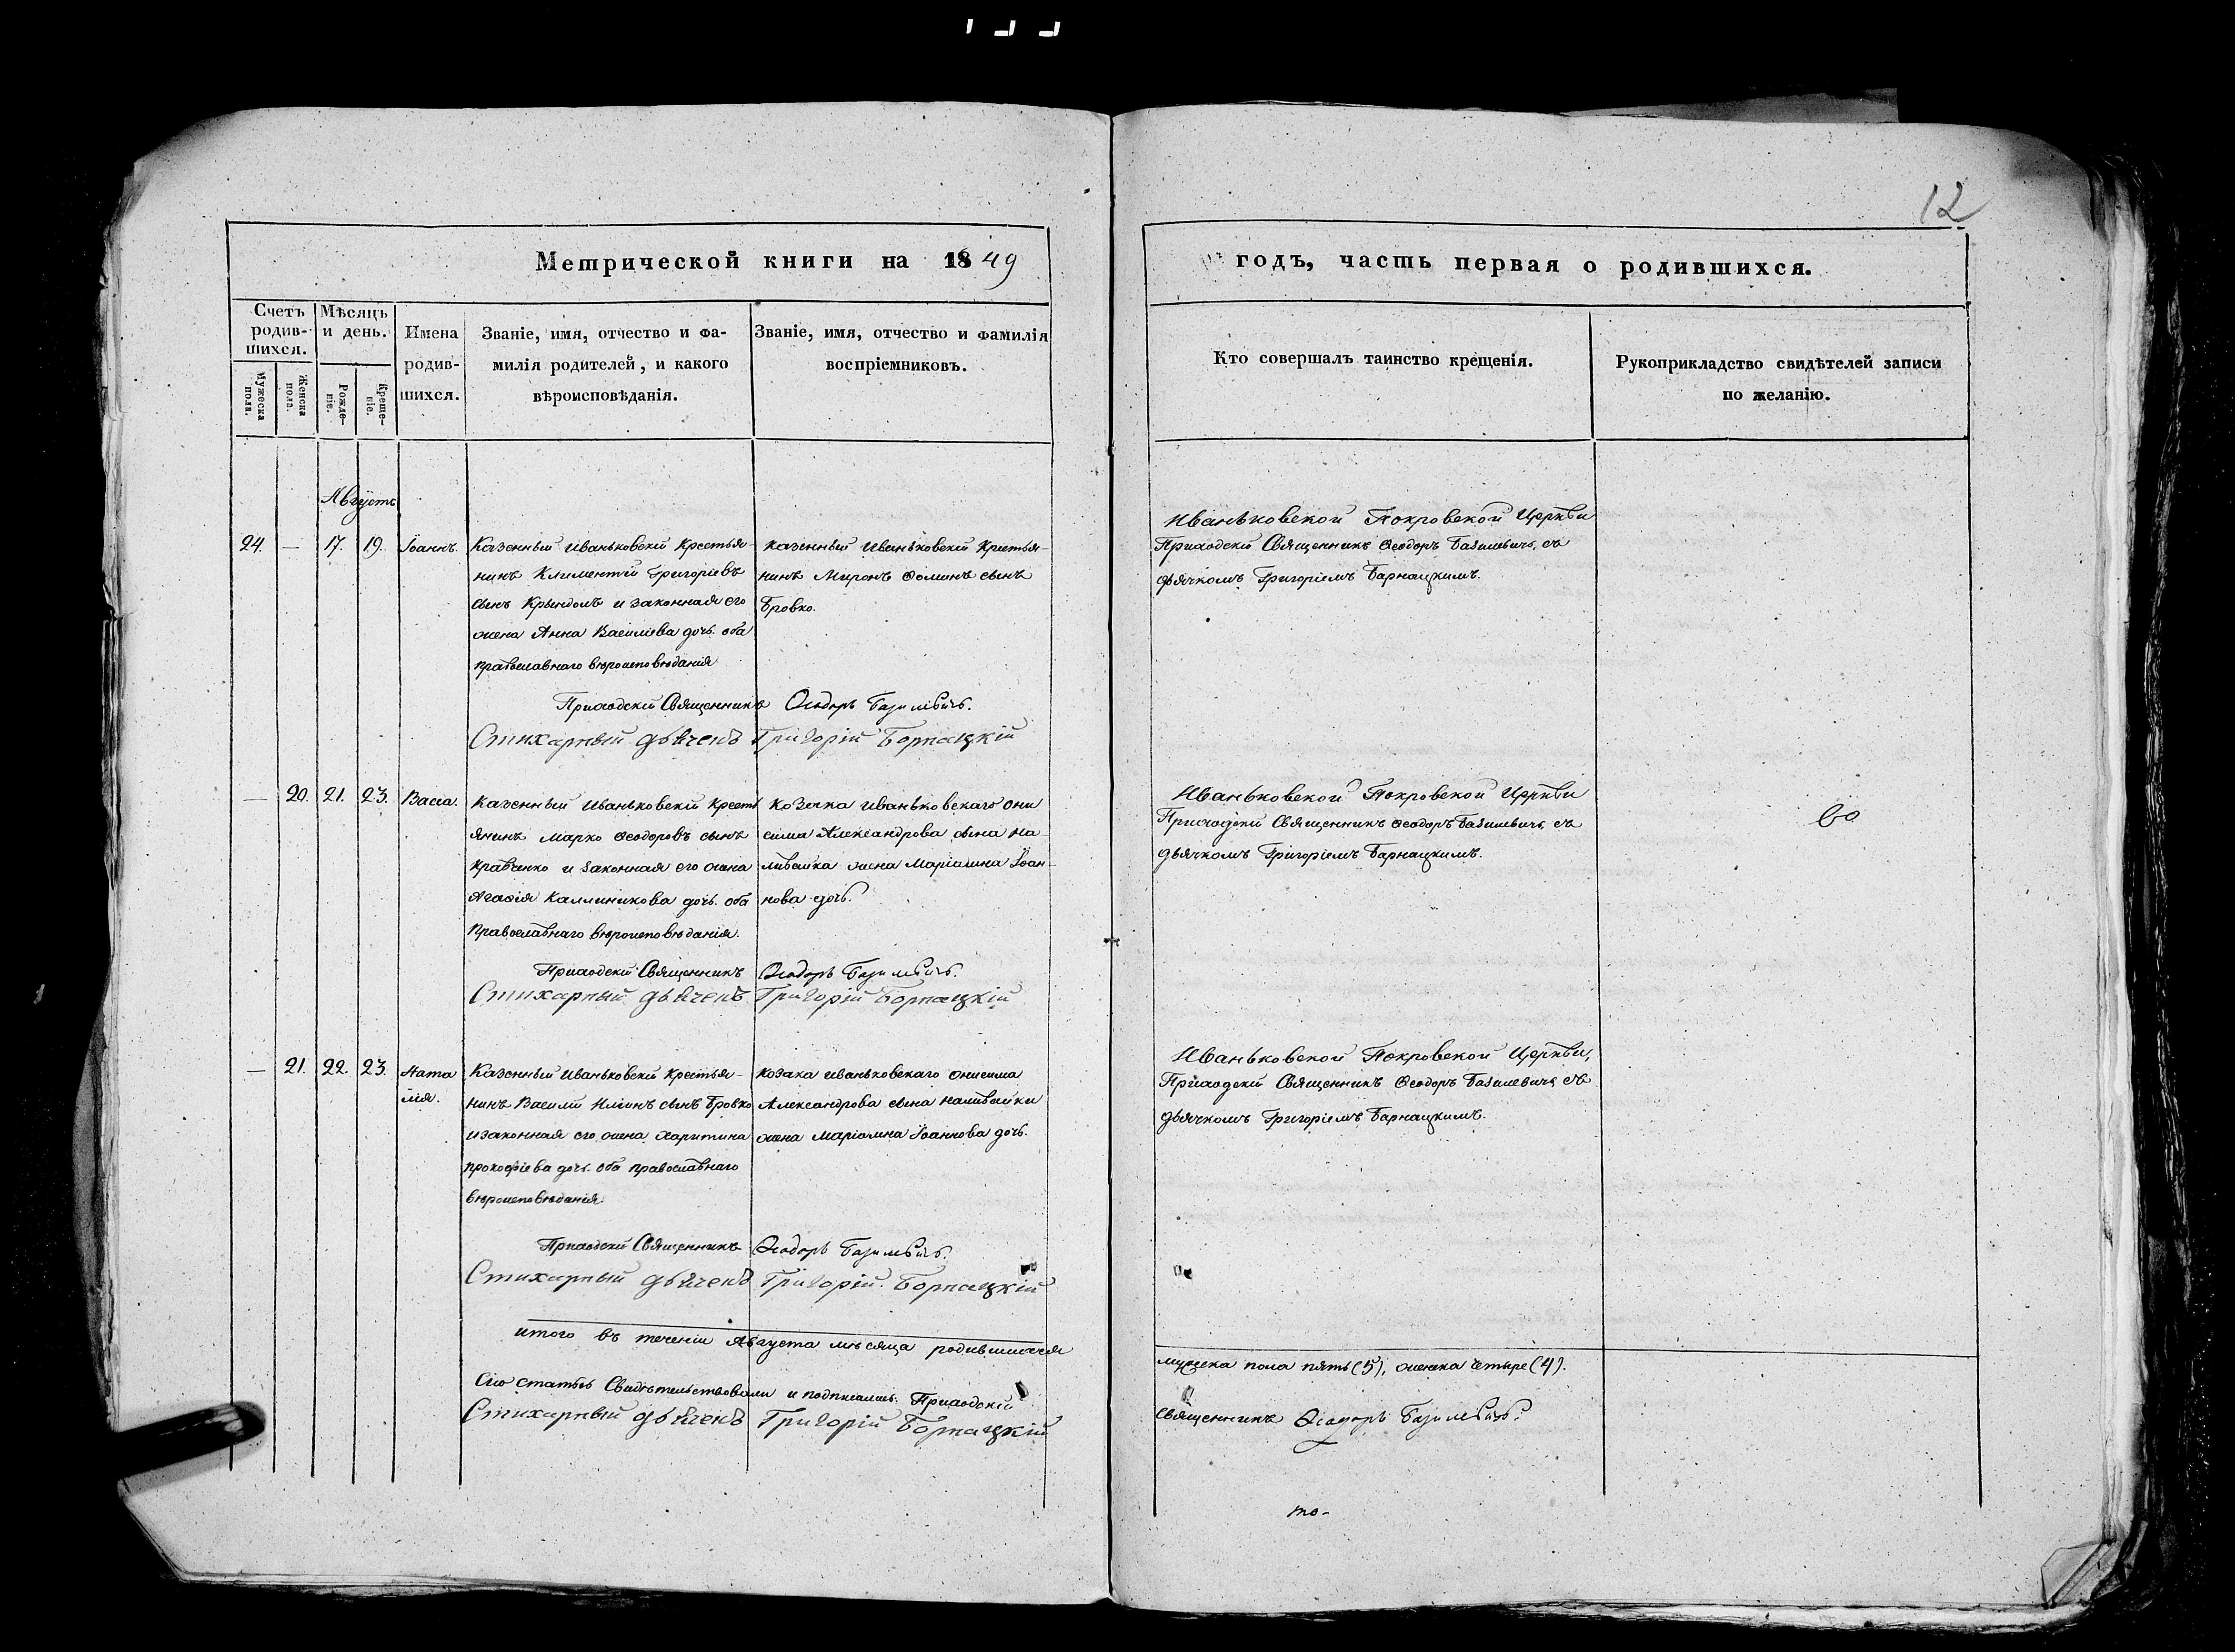 12
Метрической книги на 1849
годъ, часть первая о родившихся.
Счетъ родившихся.
Мужеска пола.
Женска пола.
Мѣсяцъ и день.
Рожденіе.
Крещеніе.
Имена родившихся.
Званіе, имя, отчество и фамилія родителей, и какого вѣроисповѣданія.
Званіе, имя, отчество и фамилія воспріемниковъ.
Кто совершалъ таинство крещенія.
Рукоприкладство свидѣтелей записи по желанію.
Августъ
24. — 17. 19. Іоаннъ.
Казенный Иваньковскій Крестья-
нинъ Климентій Григоріевъ
сынъ и законная его
жена Анна Василіева дочь. оба
православнаго вѣроисповѣданія
Казенный Иваньковскій Крестья-
нинъ Миронъ Ѳоминъ сынъ
Бровко.
Иваньковской Покровской Церкви
Приходскій Священникъ Ѳеодоръ Базилевичъ, съ
дьячкомъ Григоріемъ Барнацкимъ.
Приходскій Священникъ Ѳеодоръ Базилевичъ.
Стихарный дьячекъ Григорій Борнацкій
— 20. 21. 23. Васса.
Казенный Иваньковскій Кресть
янинъ Марко Ѳеодоровъ сынъ
Кравченко и законная его жена
Агафія Каллиникова дочь. оба
Православнаго вѣроисповѣданія.
Козака Иваньковскаго Они
сима Александрова сына На-
ливайка жена Маріамна Іоан-
нова дочь.
Иваньковской Покровской Церкви
Приходскій Священникъ Ѳеодоръ Базилевичъ, съ
дьячкомъ Григоріемъ Барнацкимъ.
Приходскій Священникъ Ѳеодоръ Базилевичъ.
Стихарный дьячекъ Григорій Борнацкій
— 21. 22. 23. Ната
лія.
Казенный Иваньковскій Крестья-
нинъ Василій Иліинъ сынъ Бровко
и законная его жена Харитина
Прокофіева дочь. оба православнаго
вѣроисповѣданія
Козака иваньковскаго Онисима
Александрова сына Наливайки
жена Маріамна Іоаннова дочь.
Иваньковской Покровской Церкви,
Приходскій Священникъ Ѳеодоръ Базилевичъ съ
дьячкомъ Григоріемъ Барнацкимъ.
Приходскій Священникъ Ѳеодоръ Базилевичъ.
Стихарный дьячекъ Григорій Борнацкій
итого въ теченіи Августа мѣсяца родившихся
мужеска пола пять (5), женска четыре (4).
Сію статью Свидѣтельствовали и подписались. Приходскій
Священникъ Ѳеодоръ Базилевичъ.
Стихарный дьячекъ Григорій Борнацкій